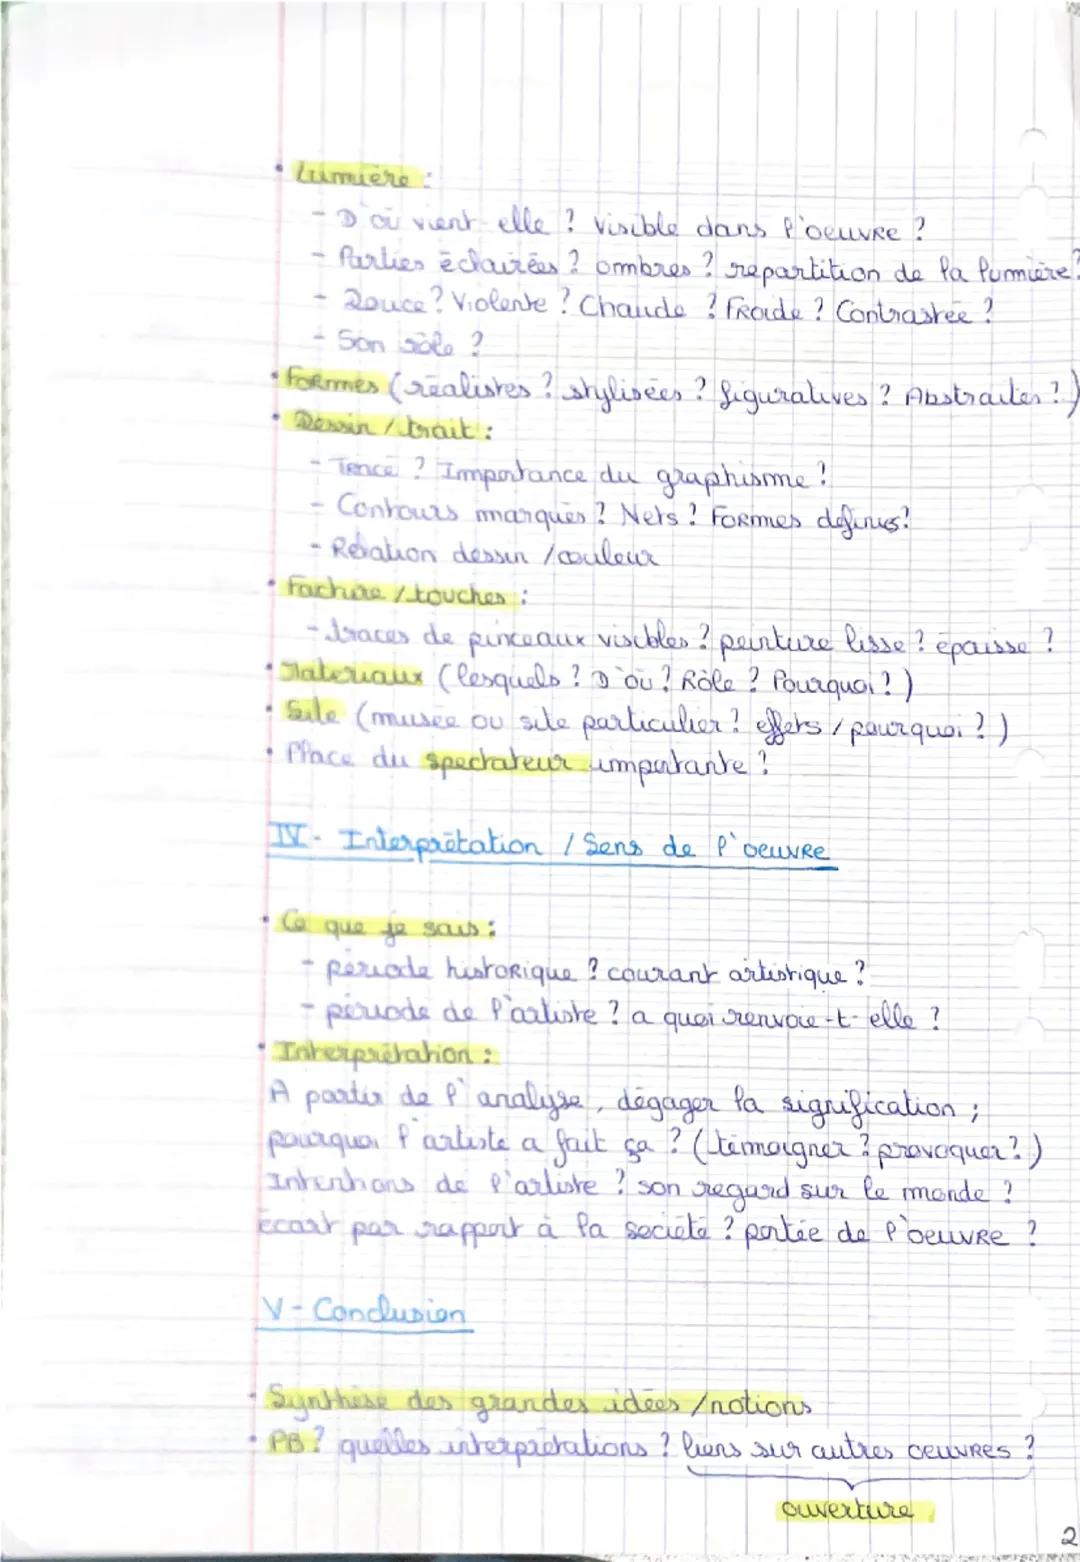 • Lumière :
- D'où vient-elle ? visible dans l'oeuvre ?
- Parties éclairées ? ombres ? répartition de la lumière ?
- Douce ? Violente ? Chaude ? Froide ? Contrastée ?
- Son rôle ?
• Formes (réalistes ? stylisées ? figuratives ? Abstraites ?)
• Dessin / trait :
- Tracé ? Importance du graphisme ?
- Contours marqués ? Nets ? Formes définies ?
- Relation dessin / couleur
• Facture / touches :
- traces de pinceaux visibles ? peinture lisse ? épaisse ?
• Matériaux (lesquels ? D'où ? Rôle ? Pourquoi ?)
• Site (musée ou site particulier ? effets / pourquoi ?)
• Place du spectateur importante ?
IV - Interprétation / Sens de l'oeuvre
• Ce que je sais :
- période historique ? courant artistique ?
- période de l'artiste ? a quoi renvoie-t-elle ?
• Interprétation :
A partir de l'analyse, dégager la signification ;
pourquoi l'artiste a fait ça ? (témoigner ? provoquer ?)
Intentions de l'artiste ? son regard sur le monde ?
écart par rapport à la société ? portée de l'oeuvre ?
V - Conclusion
• Synthèse des grandes idées / notions
• PB ? quelles interprétations ? liens sur autres oeuvres ?
ouverture
2